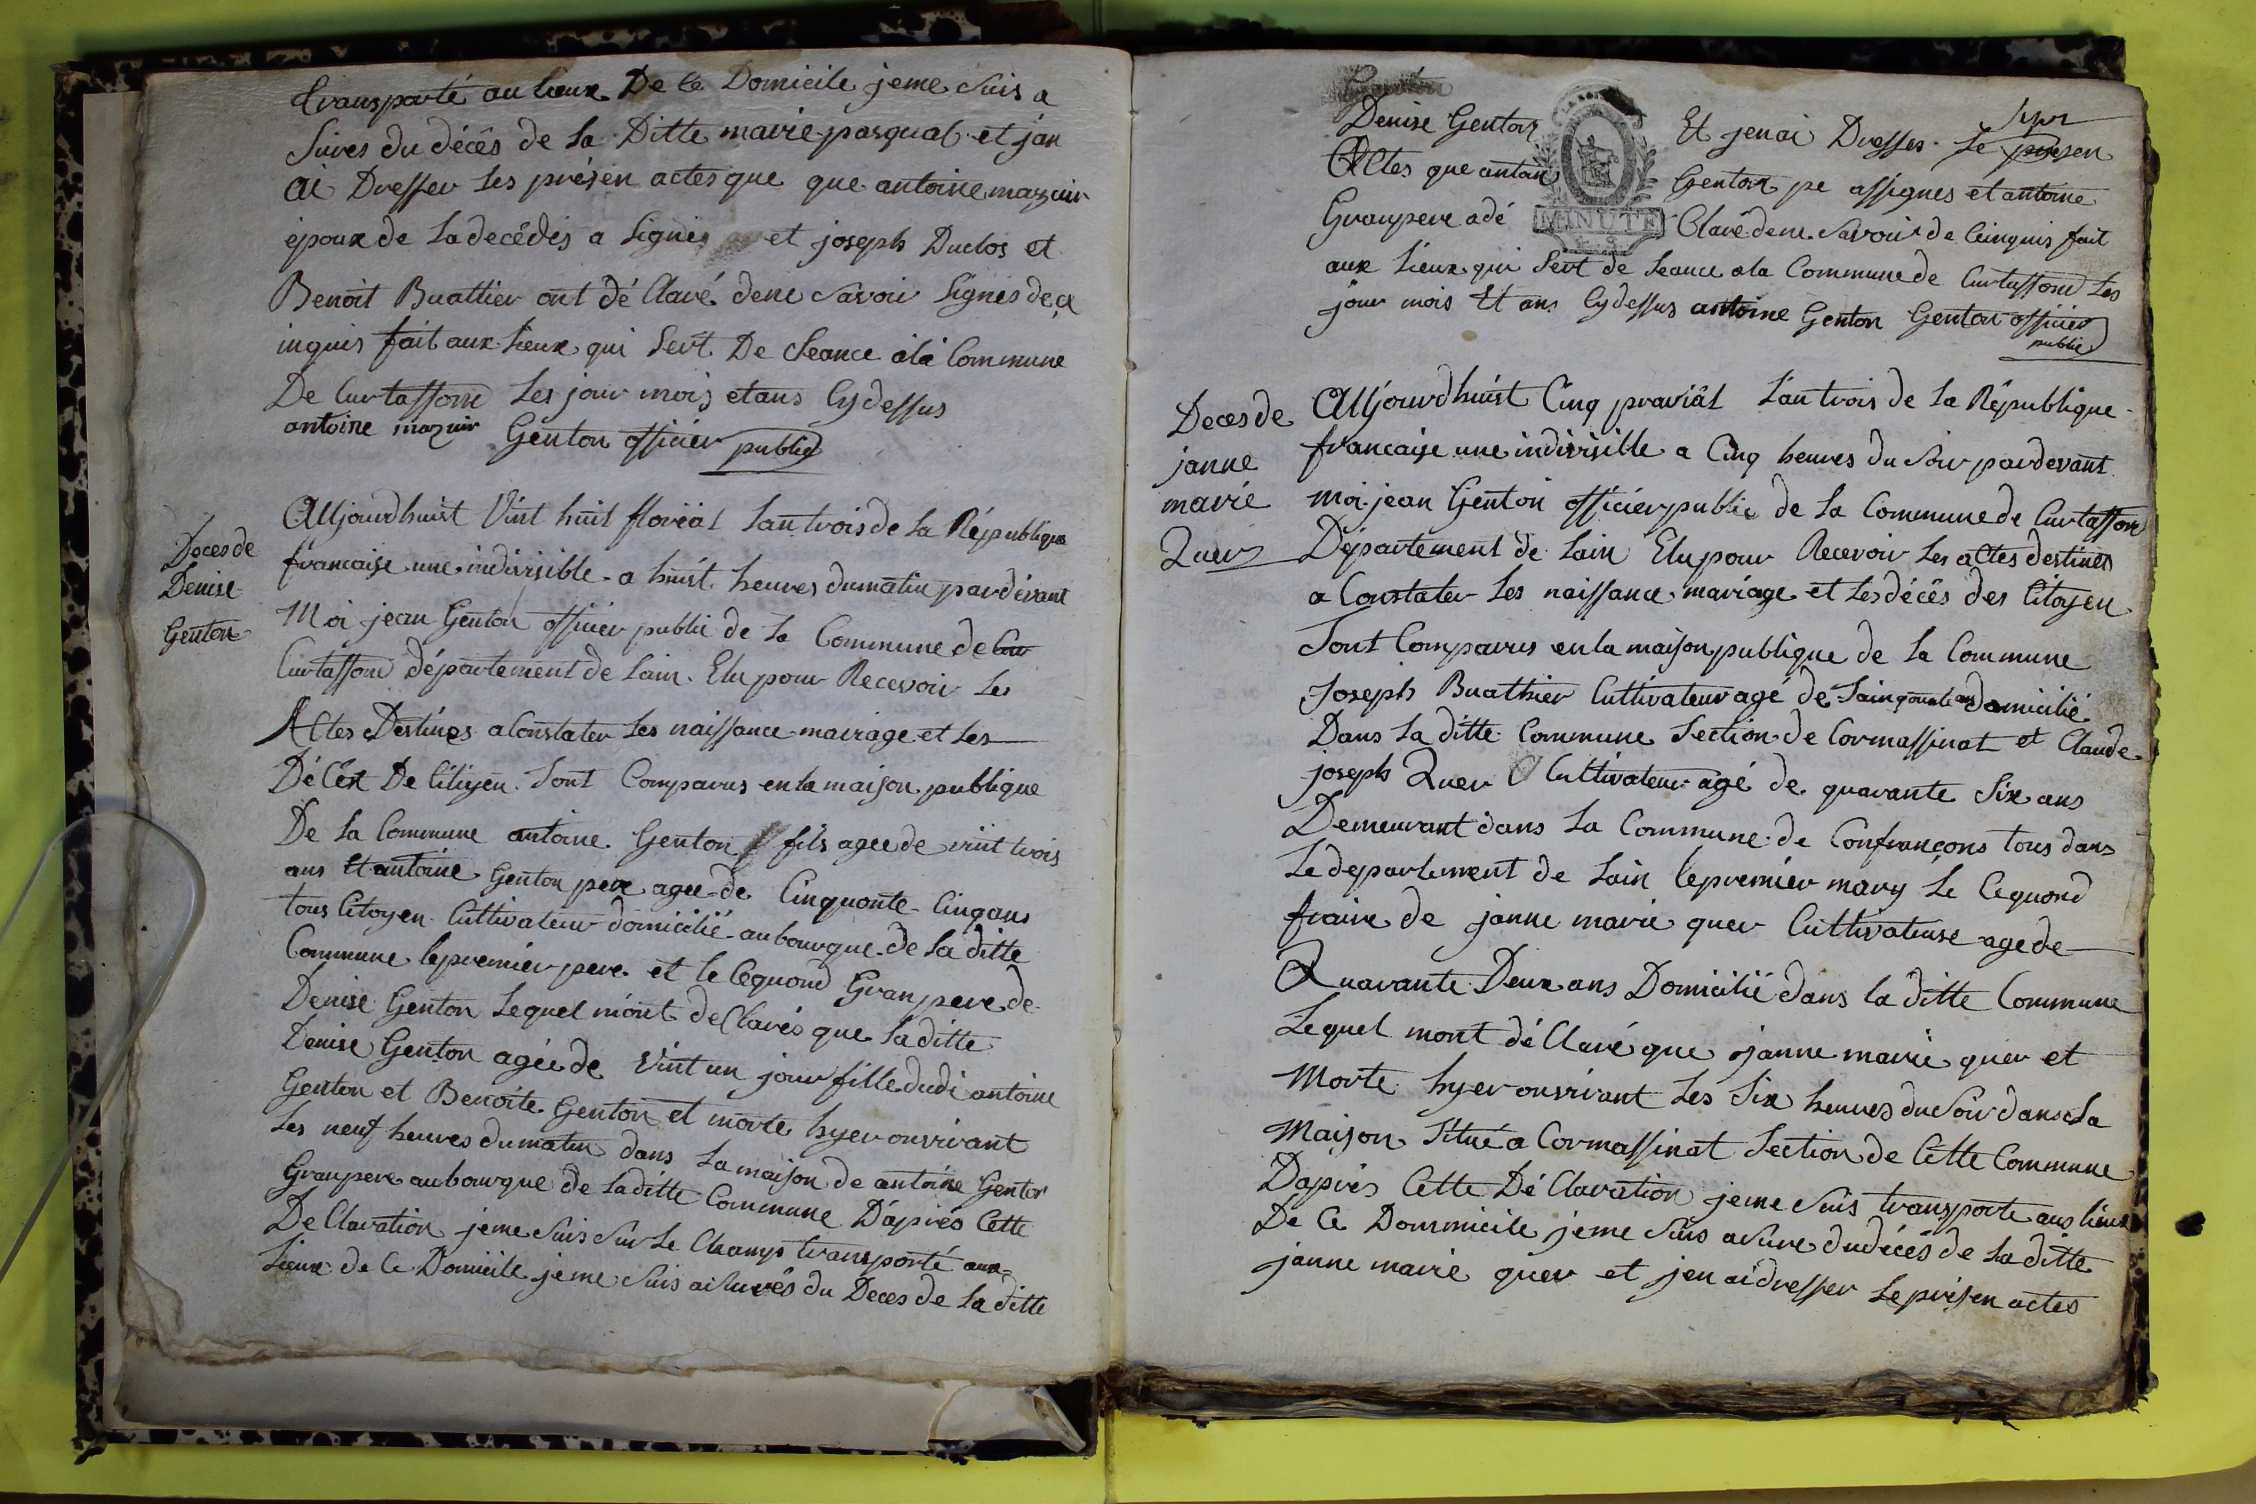 transporté au lieux De Ce Domicile jeme Suis a
Sures du décês de la Ditte marie pasqual et jan
ai Dresser les présen actes que que antoine mazuir
époux de la decédés a Signés et joseph Duclos et
Benoit Buattier ont dé Claré dene Savoir Signes de ce
inquis fait aux lieux qui Sert De Seance ala Commune
De Curtaffond les jour mois et ans Cydessus
antoine mazuir Genton officier public
Deces de
Denise
Genton
Aujjourdhuist Vint huit floréal lan trois de la République
francaise une indivisible a huist heures dumatin pardevant
Moi jean Genton officier public de la Commune de Cur
Curtaffond département de lain Elu pour Recevoir les
Actes Destines a Constater les naissance mairage et les
Décêx De Citiyen Sont Comparus en la maison publique
De la Commune antoine Genton fils agee de vint trois
ans Et antoine Genton pere agee de Cinquante Cinq ans
tous Citoyen Cultivateur domicilié au bourgue de la ditte
Commune le premiér pere et le Cequond Gran pere de
Denise Genton lequel mont déClarés que la ditte
Denise Genton agée de vint un jour fille dudi antoine
Genton et Benoite Genton et morte hyer onvirant
les neuf heures dumatin dans la maison de antoine Genton
Granpere aubourgue de laditte Commune Daprés Cette
DeClaration jeme Suis Sur le Champs transporté aux
lieux de Ce Domicile jeme Suis aisurés du Deces de la ditte
Denise Genton Et jenai Dresser le presen
Actes que antoine Genton pe assignes et antoine
Granpere adé Claré dene Savoir de Ceinquis fait
MINUTE
aux lieux qui Sert de Seance ala Commune de Curtaffond les
jour mois Et ans Cydessus antoine Genton Genton officier
public
Deces de
janne
marie
Quer
Aujjourdhuist Cinq prairiál lan trois de la République
francaise une indivisible a Cinq heures du Soir pardevant
moi jean Genton officier public de la Commune de Curtaffond
Département de lain Elu pour Recevoir les actes destines
a Constater les naissance mariage et les décês des Citoyen
Sont Comparus en la maison publique de la Commune
Joseph Buathier Cultivateur agé de domicilié
Dans la ditte Commune Section de Cormassinat et Claude
joseph Quer Cultivateur agé de quarante Six ans
Demeurant dans la Commune de Confrançons tous dans
le departement de lain le premiér mary le Cequond
fraire de janne marie quer Cultivateuse age de
Quarante Deux ans Domicilié dans la ditte Commune
lequel mont déClaré que janne marie quer et
Morte hyer onvirant les Six heures du Soir dans la
Maison Situé a Cormassinat Section de Cette Commune
Daprés Cette DéClaration jeme Suis transporte aus lieux
De Ce Dommicile jeme Suis asure du décés de la ditte
janne marie quer et jen ai dresser le présen actes